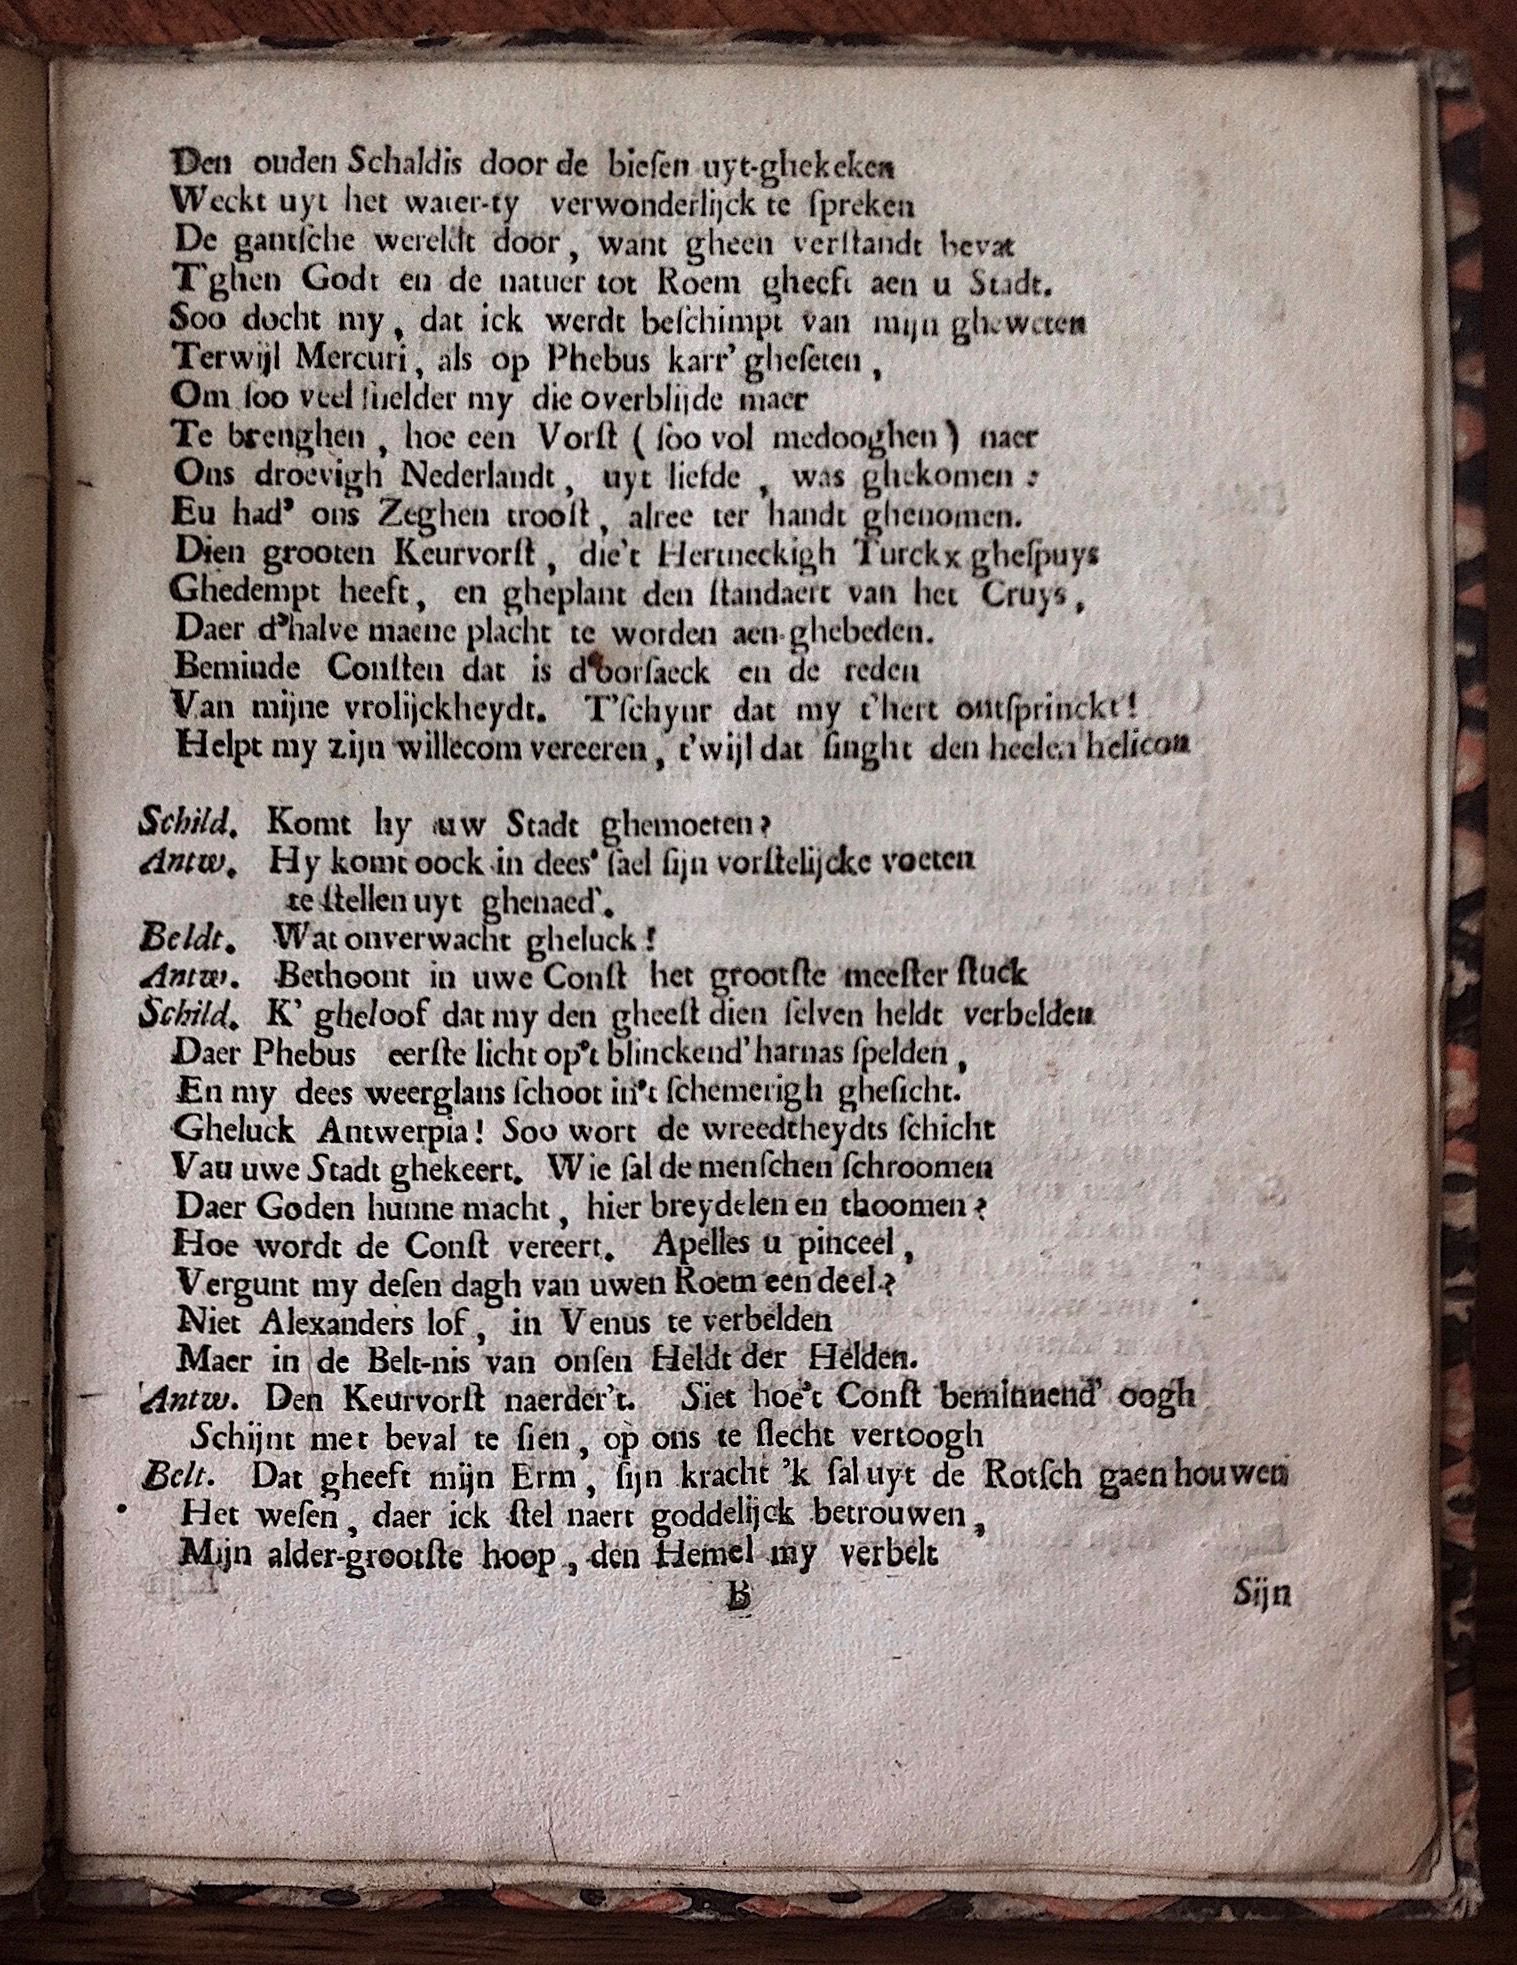 Den ouden Schaldis door de bieſen uyt-ghekeken
Weckt uyt het water-ty verwonderlijck te ſpreken
De gantſche wereldt door, want gheen verſtandt bevat
T'ghen Godt en de natuer tot Roem gheeft aen u Stadt.
Soo docht my, dat ick werdt beſchimpt van mijn gheweten
Terwijl Mercuri, als op Phebus karr' gheſeten,
Om ſoo veel ſnelder my die overblijde maer
Te brenghen, hoe een Vorſt (ſoo vol medooghen) naer
Ons droevigh Nederlandt, uyt liefde, was ghekomen:
Eu had' ons Zeghen trooſt, alree ter handt ghenomen.
Dien grooten Keurvorſt, die't Hertneckigh Turckx gheſpuys
Ghedempt heeft, en gheplant den ſtandaert van het Cruys,
Daer d'halve maene placht te worden aen-ghebeden.
Beminde Conſten dat is d'oorſaeck en de reden
Van mijne vrolijckheydt. T'ſchynr dat my t'hert ontſprinckt!
Helpt my zijn willecom vereeren, t'wijl dat ſinght den heelen helicon
Schild. Komt hy uw Stadt ghemoeten?
Antw. Hy komt oock in dees' ſael ſijn vorſtelijcke voeten
te ſtellen uyt ghenaed'.
Beldt. Wat onverwacht gheluck!
Antw. Bethoont in uwe Conſt het grootſte meeſter ſtuck
Schild. K' gheloof dat my den gheeſt dien ſelven heldt verbelden
Daer Phebus eerſte licht op't blinckend' harnas ſpelden,
En my dees weerglans ſchoot in't ſchemerigh gheſicht.
Gheluck Antwerpia! Soo wort de wreedtheydts ſchicht
Vau uwe Stadt ghekeert. Wie ſal de menſchen ſchroomen
Daer Goden hunne macht, hier breydelen en thoomen?
Hoe wordt de Conſt vereert. Apelles u pinceel,
Vergunt my deſen dagh van uwen Roem een deel?
Niet Alexanders lof, in Venus te verbelden
Maer in de Belt-nis van onſen Heldt der Helden.
Antw. Den Keurvorſt naerder't. Siet hoe't Conſt beminnend' oogh
Schijnt met beval te ſien, op ons te ſlecht vertoogh
Belt. Dat gheeft mijn Erm, ſijn kracht 'k ſal uyt de Rotſch gaen houwen
Het weſen, daer ick ſtel naert goddelijck betrouwen,
Mijn alder-grootſte hoop, den Hemel my verbelt
B Sijn